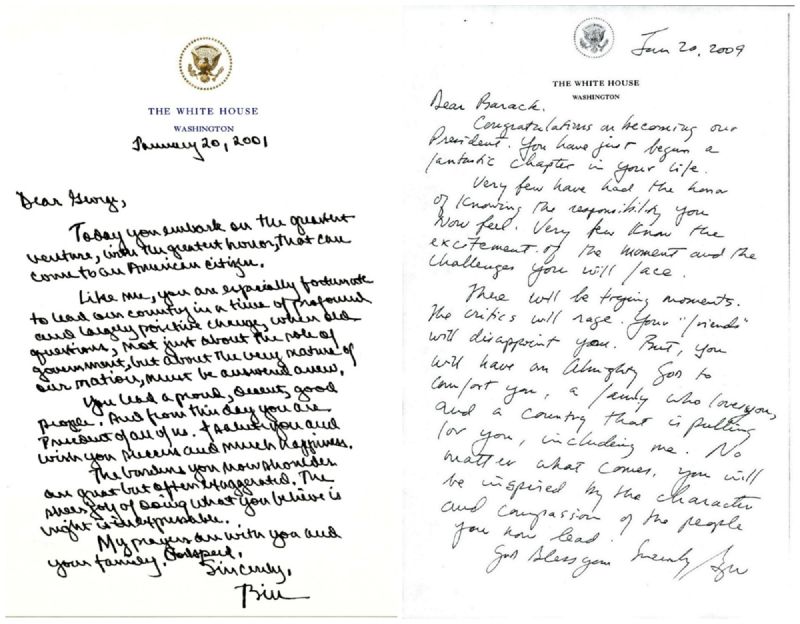 THE WHITE HOUSE
WASHINGTON
January 20, 2001
Dear George,
Today you embark on the greatest
venture, with the greatest honor, that can
come to an American citizen.
Like me, you are especially fortunate
to lead our country in a time of profound
and largely positive change, when old
questions, not just about the role of
government, but about the very nature of
our nation, must be answered anew.
You lead a proud, decent, good
people. And from this day you are
President of all of us. I salute you and
wish you success and much happiness.
The burdens you now shoulder
are great but often exaggerated. The
sheer joy of doing what you believe is
right is inexpressible.
My prayers are with you and
your family. Godspeed.
Sincerely,
Bill
Jan 20, 2009
THE WHITE HOUSE
WASHINGTON
Dear Barack.
Congratulations on becoming our
President. You have just begun a
fantastic chapter in your life.
Very few have had the honor
of knowing the responsibility you
now feel. Very few know the
excitement of the moment and the
challenges you will face.
There will be trying moments.
The critics will rage. Your "friends"
will disappoint you. But, you
will have an Almighty God to
comfort you, a family who loves you,
and a country that is pulling
for you, including me. No
matter what comes, you will
be inspired by the character
and compassion of the people
you now lead.
God bless you Sincerely,